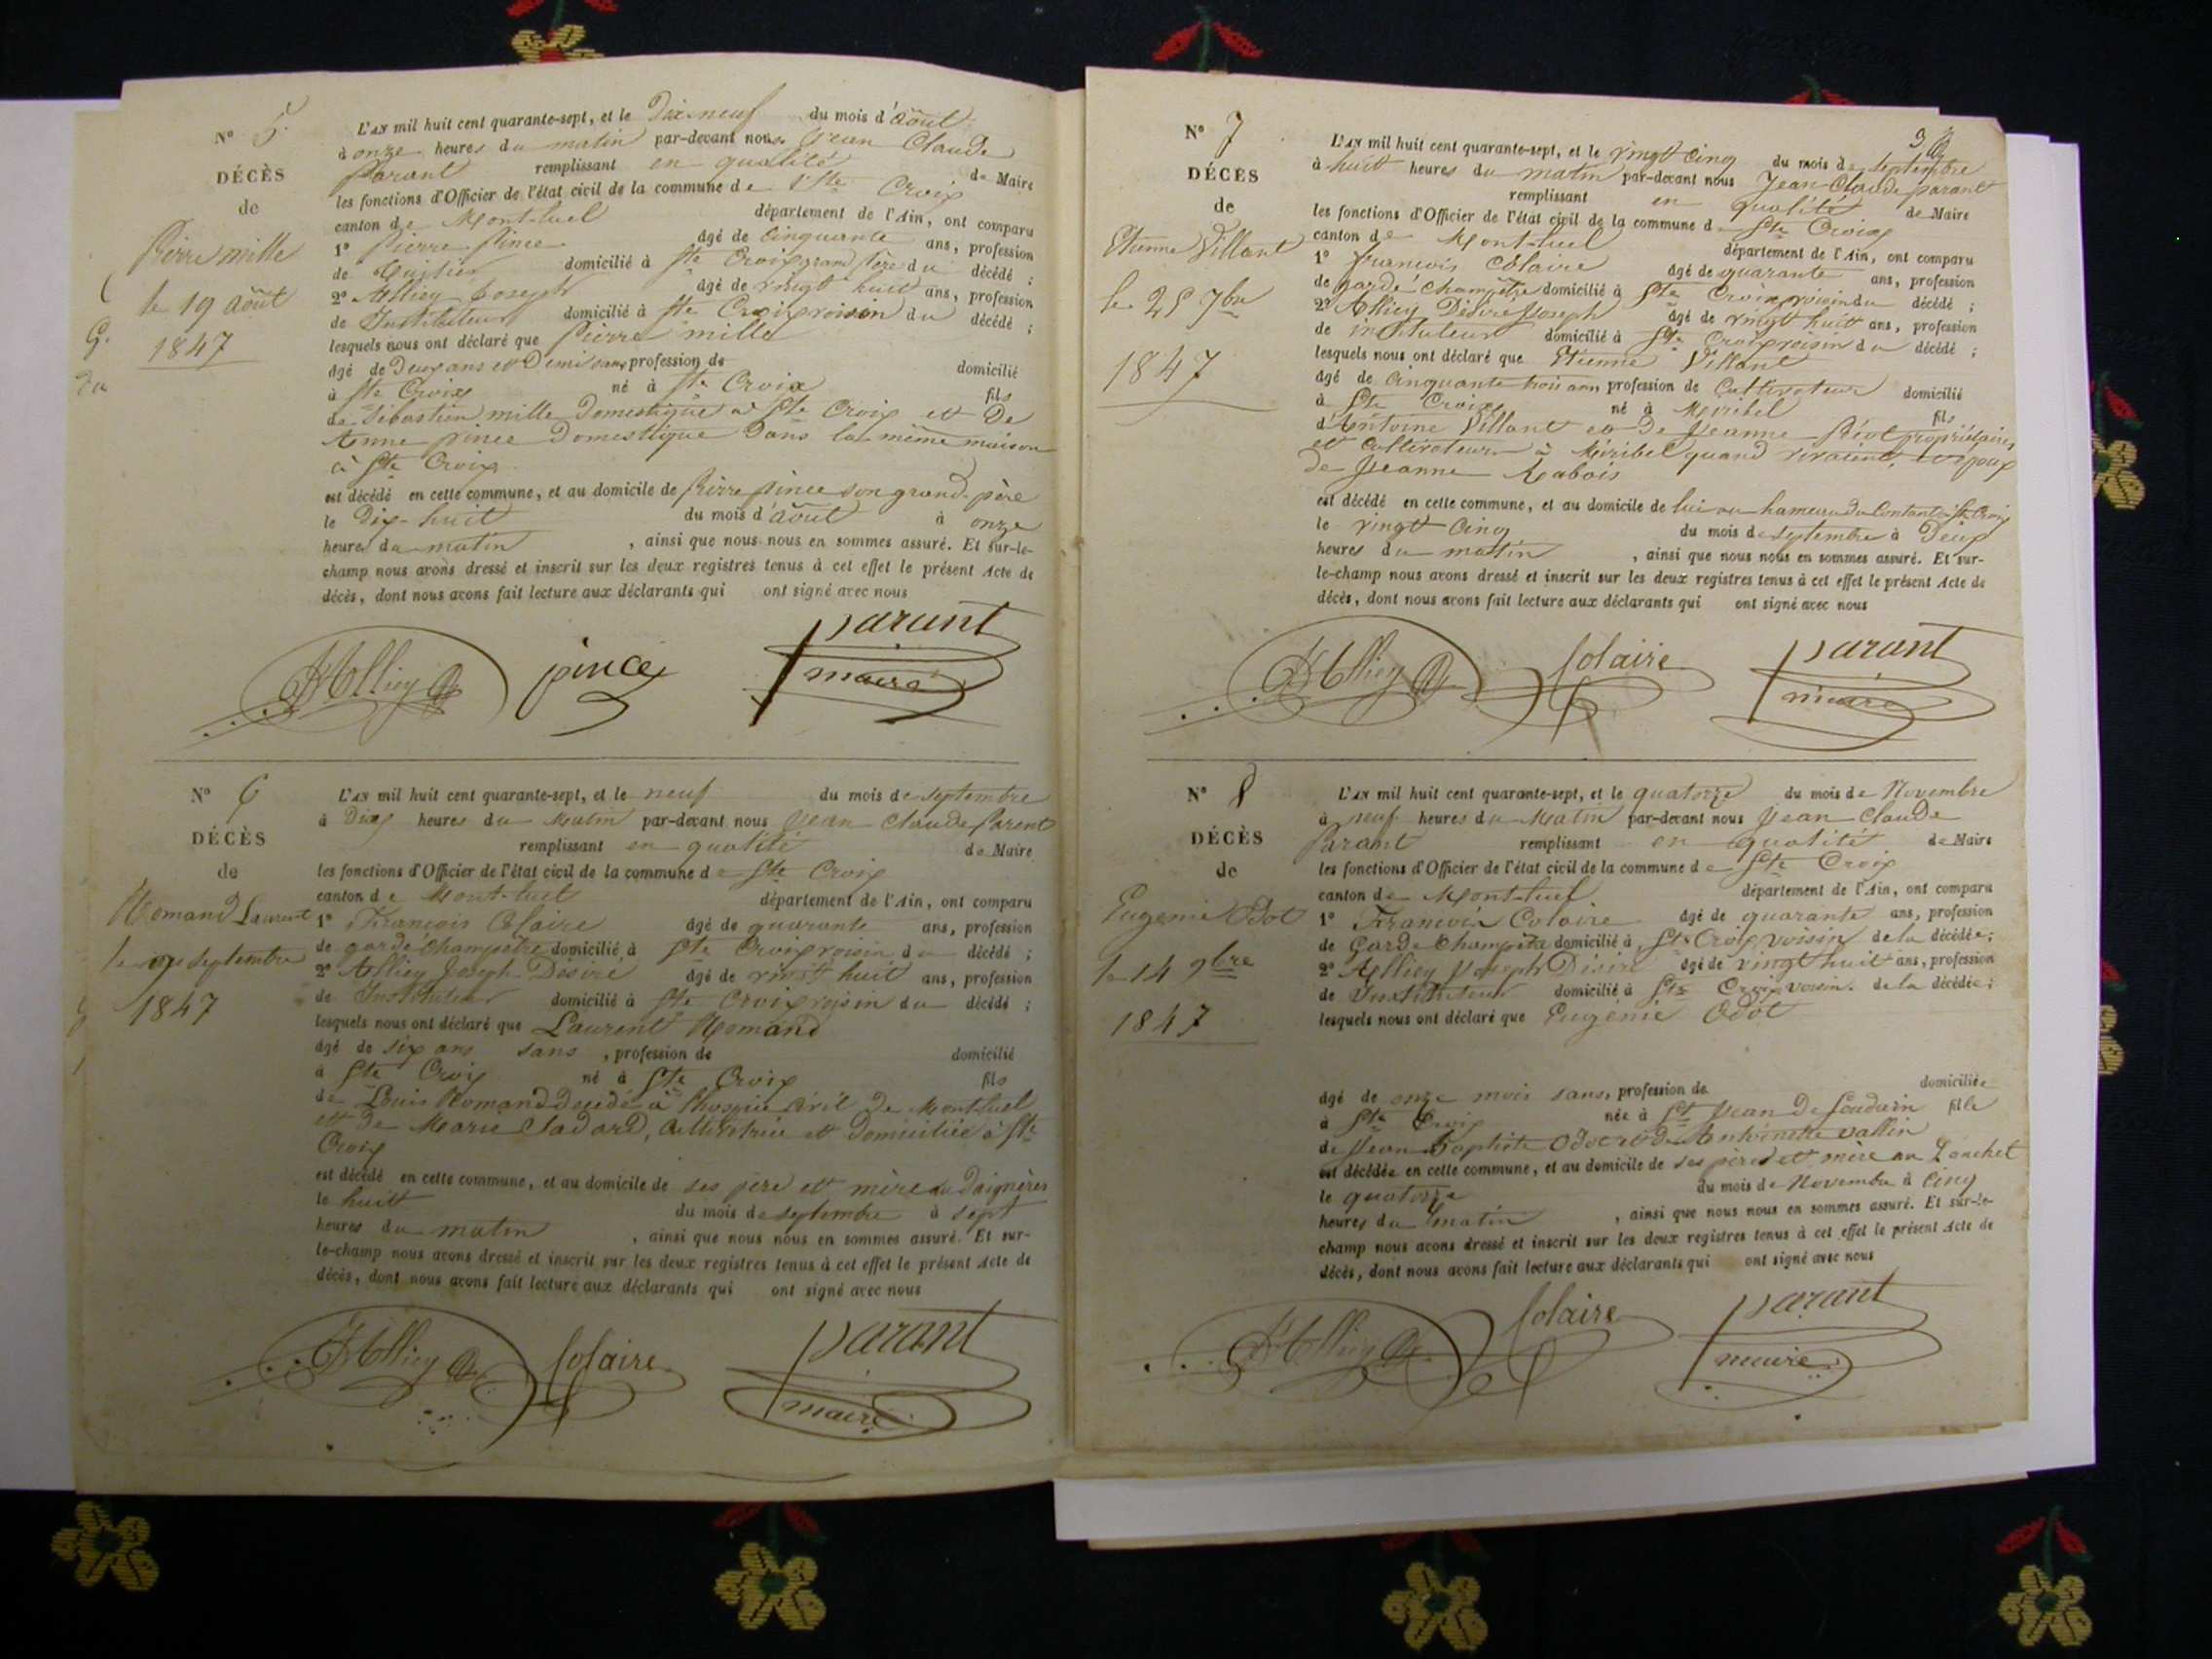 N° 5
DÉCÈS
de
Pierre mille
le 19 août
1847
L'AN mil huit cent quarante-sept, et le Dix neuf du mois d'août
à onze heures du matin par-devant nous Jean Claude
Parant remplissant en qualité de Maire
les fonctions d'Officier de l'état civil de la commune de Ste Croix
canton de Mont-luel département de l'Ain, ont comparu
1° Pierre Pince âgé de Cinquante ans, profession
de domicilié à Ste Croix grand père du décédé ;
2° Alliey Joseph âgé de vingt huit ans, profession
de Instituteur domicilié à Ste Croix voisin du décédé ;
lesquels nous ont déclaré que Pierre mille
âgé de Deux ans et Demi sans profession de domicilié
à Ste Croix né à Ste Croix fils
de Sébastien mille Domestique à Ste Croix et De
Anne pince Domestique Dans la même maison
à Ste Croix
est décédé en cette commune, et au domicile de Pierre pince son grand-père
le Dix-huit du mois d'août à onze
heures du matin , ainsi que nous nous en sommes assuré. Et sur-le-
champ nous avons dressé et inscrit sur les deux registres tenus à cet effet le présent Acte de
décès, dont nous avons fait lecture aux déclarants qui ont signé avec nous
Alliey pince parant
maire
N° 6
DÉCÈS
de
Romand Laurent
le septembre
1847
L'AN mil huit cent quarante-sept, et le neuf du mois de septembre
à Dix heures du Matin par-devant nous Jean Claude Parent
remplissant en qualité de Maire
les fonctions d'Officier de l'état civil de la commune de Ste Croix
canton de Mont-luel département de l'Ain, ont comparu
1° François Colaire âgé de quarante ans, profession
de garde champêtre domicilié à Ste Croix voisin du décédé ;
2° Alliey Joseph Désiré âgé de vingt huit ans, profession
de Instituteur domicilié à Ste Croix voisin du décédé ;
lesquels nous ont déclaré que Laurent Romand
âgé de six ans sans , profession de domicilié
à Ste Croix né à Ste Croix fils
de Louis Romand décédé à l'hospice civil de Montluel
et de Marie Jadard, Cultivatrice et domiciliée à Ste
Croix
est décédé en cette commune, et au domicile de ses père et mère
le huit du mois de septembre à sept
heures du matin , ainsi que nous nous en sommes assuré. Et sur-
le-champ nous avons dressé et inscrit sur les deux registres tenus à cet effet le présent Acte de
décès, dont nous avons fait lecture aux déclarants qui ont signé avec nous
Alliey Colaire parant
maire
N° 7
DÉCÈS
de
Etienne Villant
le 25 7bre
1847
L'AN mil huit cent quarante-sept, et le vingt cinq du mois de septembre
à huit heures du matin par-devant nous Jean Claude parant
remplissant en qualité de Maire
les fonctions d'Officier de l'état civil de la commune d Ste Croix
canton de Mont-luel département de l'Ain, ont comparu
1° françois Colaire âgé de quarante ans, profession
de garde champêtre domicilié à Ste Croix voisin du décédé ;
2° Alliey Désiré Joseph âgé de vingt huit ans, profession
de instituteur domicilié à Ste Croix voisin du décédé ;
lesquels nous ont déclaré que Etienne Villant
âgé de Cinquante trois ans, profession de Cultivateur domicilié
à Ste Croix né à Miribel fils
d'Antoine Villant et De Jeanne propriétaires
et Cultivateurs à Miribel quand vivaient, époux
De Jeanne Rabois
est décédé en cette commune, et au domicile de lui au hameau du Contant Ste Croix
le vingt Cinq du mois de septembre à Deux
heures du matin , ainsi que nous nous en sommes assuré. Et sur-
le-champ nous avons dressé et inscrit sur les deux registres tenus à cet effet le présent Acte de
décès, dont nous avons fait lecture aux déclarants qui ont signé avec nous
Alliey Colaire parant
maire
N° 8
DÉCÈS
de
Eugénie Odot
le 14 9bre
1847
L'AN mil huit cent quarante-sept, et le quatorze du mois de Novembre
à neuf heures du Matin par-devant nous Jean Claude
Parant remplissant en qualité de Maire
les fonctions d'Officier de l'état civil de la commune de Ste Croix
canton de Mont-luel département de l'Ain, ont comparu
1° François Colaire âgé de quarante ans, profession
de Garde Champêtre domicilié à Ste Croix voisin de la décédée;
2° Alliey Joseph Désiré âgé de vingt huit ans, profession
de Instituteur domicilié à Ste Croix voisin de la décédée;
lesquels nous ont déclaré que Eugénie Odot
âgé de onze mois sans, profession de domiciliée
à Ste Croix née à St Jean De fille
de Jean Baptiste Odot et de Antoinette vallin
est décédée en cette commune, et au domicile de ses père et mère au
le quatorze du mois de Novembre à Cinq
heures du matin , ainsi que nous nous en sommes assuré. Et sur-le-
champ nous avons dressé et inscrit sur les deux registres tenus à cet effet le présent Acte de
décès, dont nous avons fait lecture aux déclarants qui ont signé avec nous
Alliey Colaire parant
maire